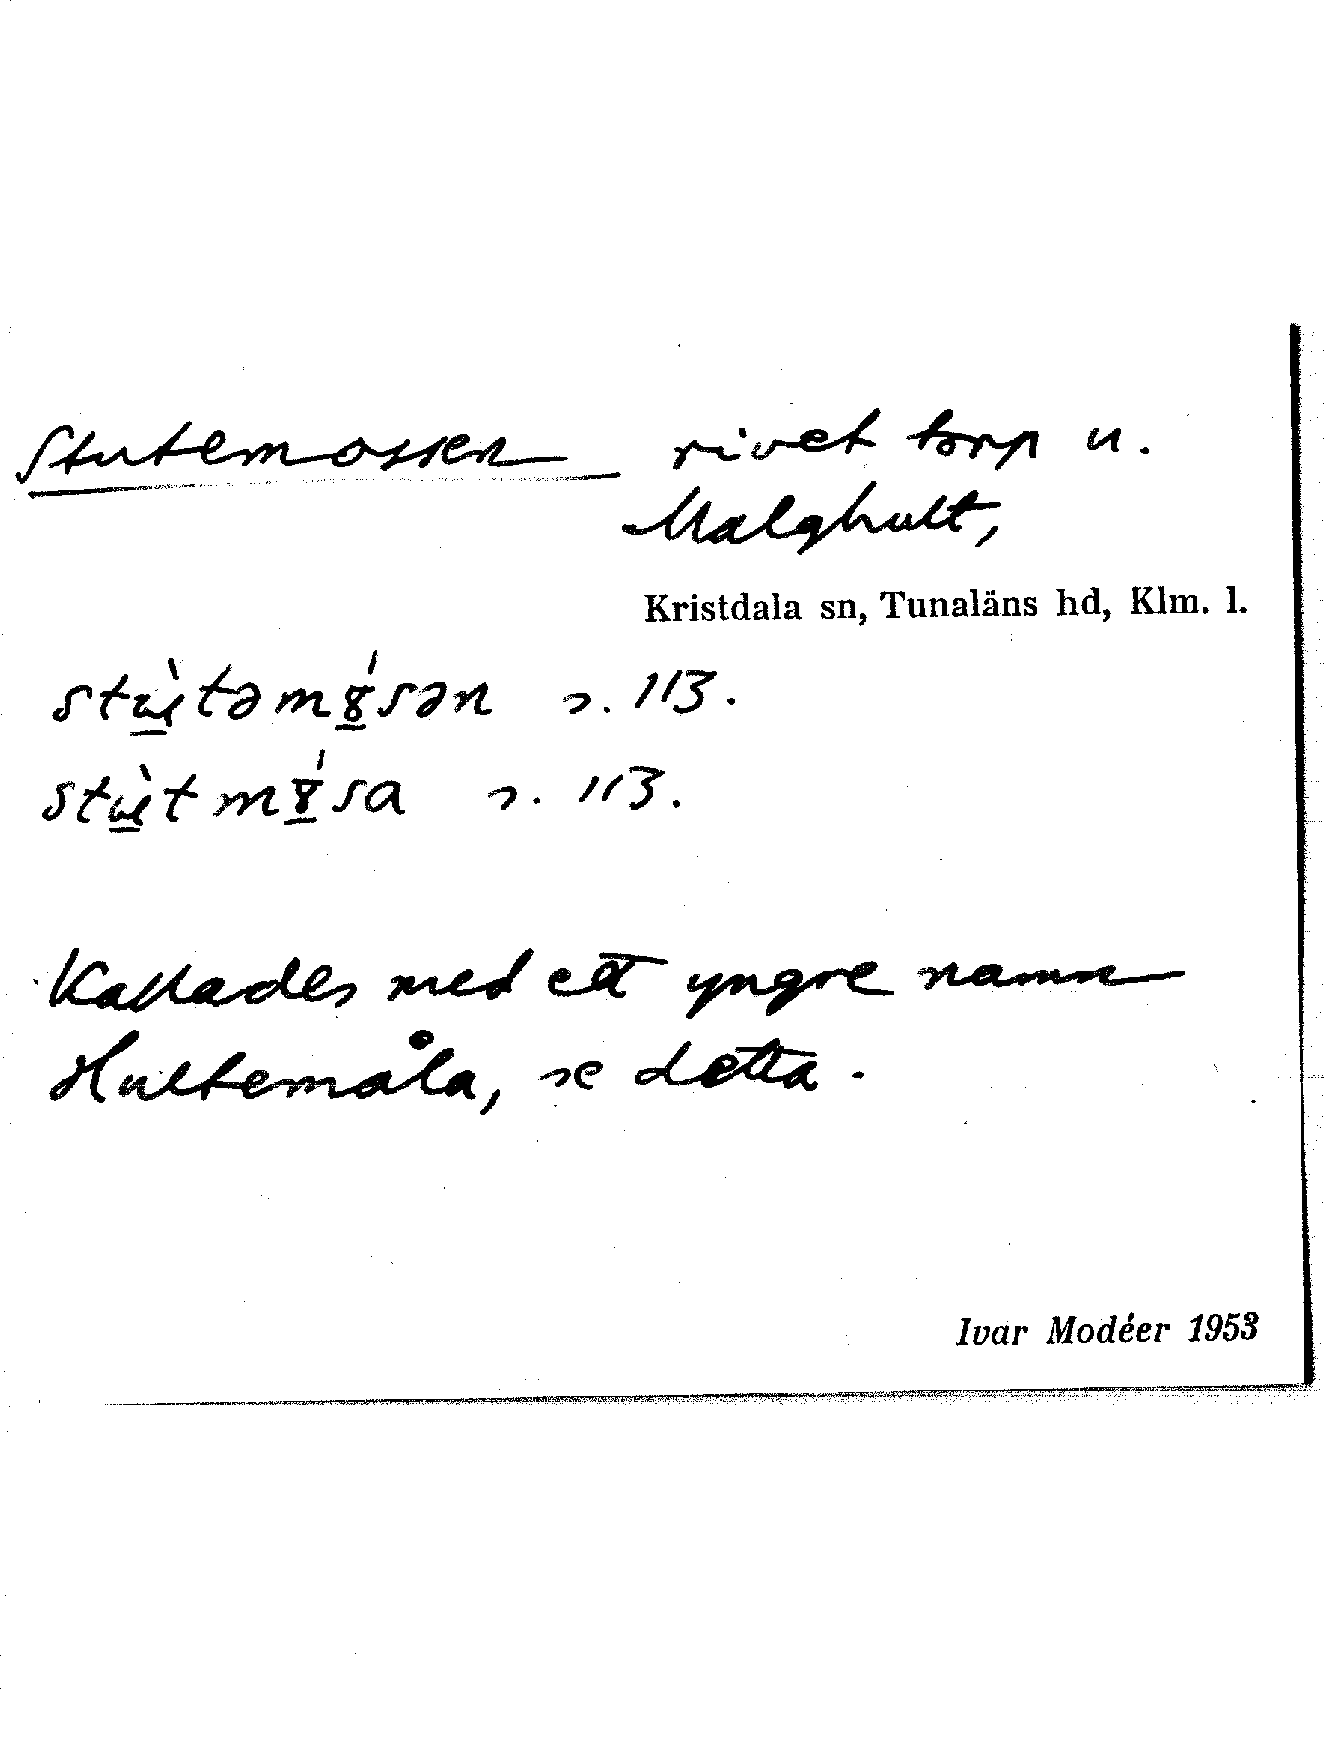 Stutemossen rivet torp u.
Malghult,
Kristdala sn, Tunaläns hd, Klm. l.
stù̲təmȣ̲́sən s. 113.
stù̲tmȣ̲́sa s. 113.
Kallades med ett yngre namn
Hultemåla, se detta.
Ivar Modéer 1953